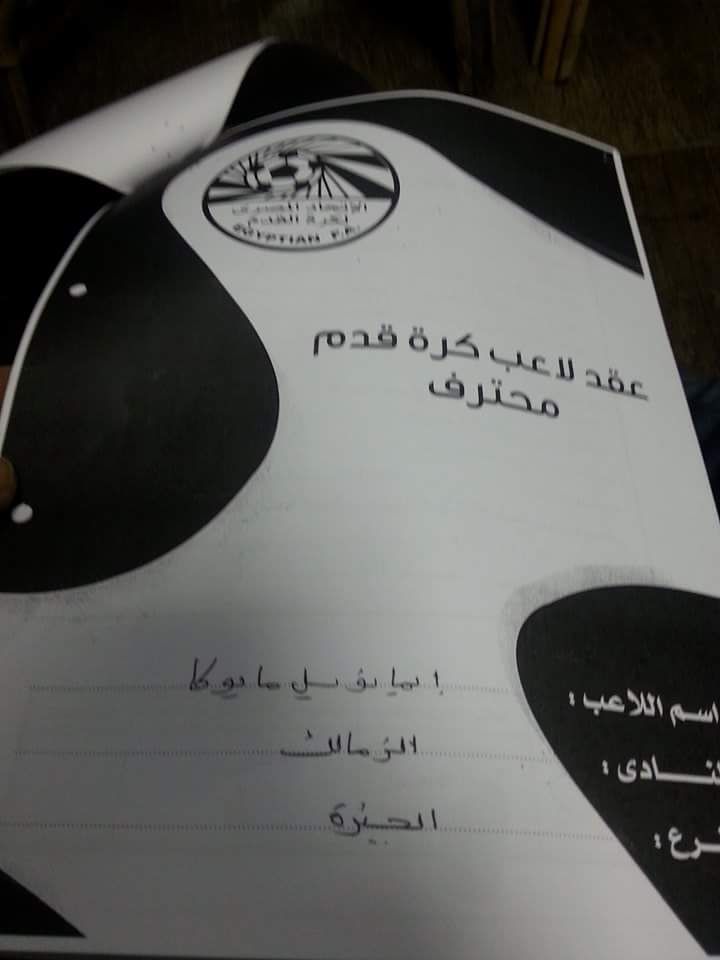 الإتحاد المصرى
لكرة القدم
EGYPTIAN F.A.
عقد لاعب كرة قدم
محترف
اسم اللاعب : إيمانويل مايوكا
نادى : الزمالك
فرع : الجيزة